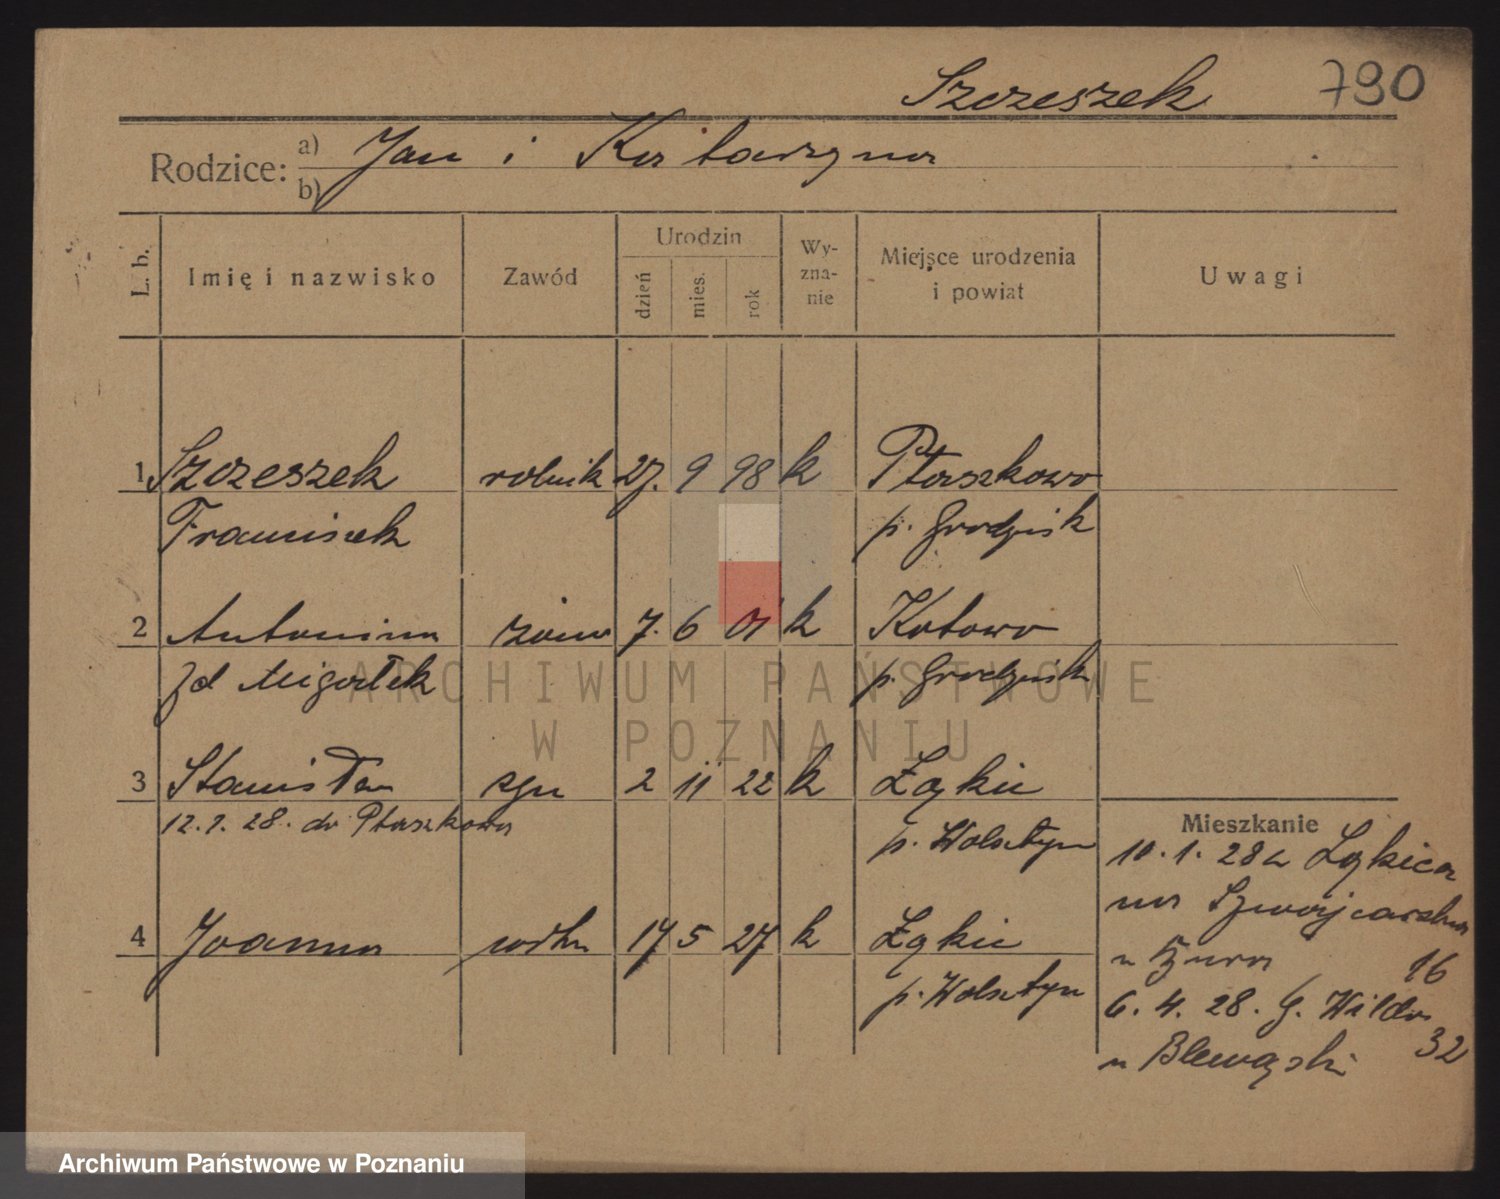 Szczeszek 790
Rodzice: a) Jan i Katarzyna
b)
L. b. Imię i nazwisko Zawód Urodzin dzień mies. rok Wyznanie Miejsce urodzenia i powiat Uwagi
1 Szczeszek rolnik 27. 9 98 k Ptaszkowo
Franciszek p. Grodzisk
2 Antonina żona 7. 6 01 k Kotowo
zd Migałek p. Grodzisk
ARCHIWUM PAŃSTWOWE
W POZNANIU
3 Stanisław syn 2 11 22 k Łąkie
12.7.28. do Ptaszkowa p. Wolsztyn
Mieszkanie
10.1.28 z Łąkiea
na Szwajcarska
4 Joanna córka 17 5 27 k Łąkie
p. Wolsztyn
u 16
6.4.28. G. Wilda 32
u
Archiwum Państwowe w Poznaniu